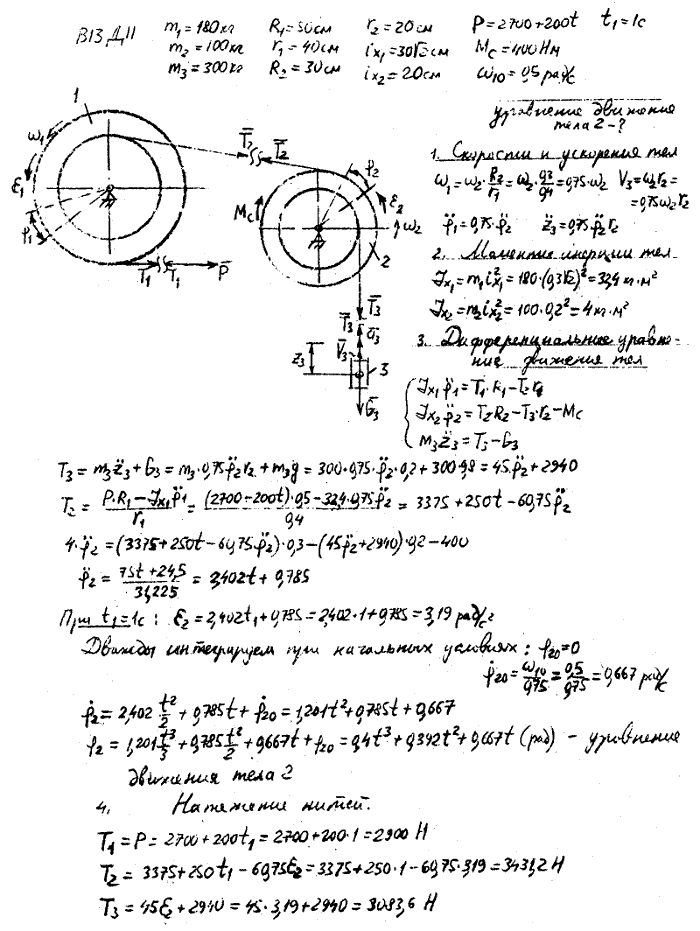 В13 Д11 m₁=180кг R₁=50см r₂=20см P=2700+200t t₁=1с
m₂=100кг r₁=40см iₓ₁=30√2см M_c=400Нм
m₃=300кг R₂=30см iₓ₂=20см ω₁₀=0,5 рад/с
уравнение движения
тела 2-?
1. Скорости и ускорения тел
ω₁=ω₂·R₂/r₁=ω₂·0,3/0,4=0,75·ω₂ V₃=ω₂r₂=
=0,75ω₂r₂
φ̈₁=0,75·φ̈₂ z̈₃=0,75φ̈₂r₂
2. Моменты инерции тел
Jₓ₁=m₁i²ₓ₁=180·(0,3√2)²=32,4 кг·м²
Jₓ₂=m₂i²ₓ₂=100·0,2²=4кг·м²
3. Дифференциальные уравне-
ние движения тел
Jₓ₁φ̈₁=T₁·R₁-T₂r₁
Jₓ₂φ̈₂=T₂R₂-T₃·r₂-M_c
m₃z̈₃=T₃-G₃
1 ω₁ ε₁ φ₁ T̄₁ T̄₁ P̄ T̄₂ T̄₂
M_c φ₂ ε₂ ω₂ 2
T̄₃ T̄₃ ā₃ V̄₃ z₃ 3 Ḡ₃
T₃=m₃z̈₃+G₃=m₃·0,75φ̈₂r₂+m₃g=300·0,75·φ̈₂·0,2+300·9,8=45φ̈₂+2940
T₂=(P·R₁-Jₓ₁φ̈₁)/r₁=((2700-200t)·0,5-32,4·0,75φ̈₂)/0,4=3375+250t-60,75φ̈₂
4·φ̈₂=(3375+250t-60,75φ̈₂)·0,3-(45φ̈₂+2940)·0,2-400
φ̈₂=(75t+24,5)/31,225=2,402t+0,785
При t₁=1с: ε₂=2,402t₁+0,785=2,402·1+0,785=3,19 рад/с²
Дважды интегрируем при начальных условиях: φ₂₀=0
φ̇₂₀=ω₁₀/0,75=0,5/0,75=0,667 рад/с
φ̇₂=2,402 t²/2+0,785t+φ̇₂₀=1,201t²+0,785t+0,667
φ₂=1,201 t³/3+0,785 t²/2+0,667t+φ₂₀=0,4t³+0,392t²+0,667t (рад) - уравнение
движения тела 2
4. Натяжение нитей.
T₁=P=2700+200t₁=2700+200·1=2900 Н
T₂=3375+250t₁-60,75ε₂=3375+250·1-60,75·3,19=3431,2 Н
T₃=45ε₂+2940=45·3,19+2940=3083,6 Н